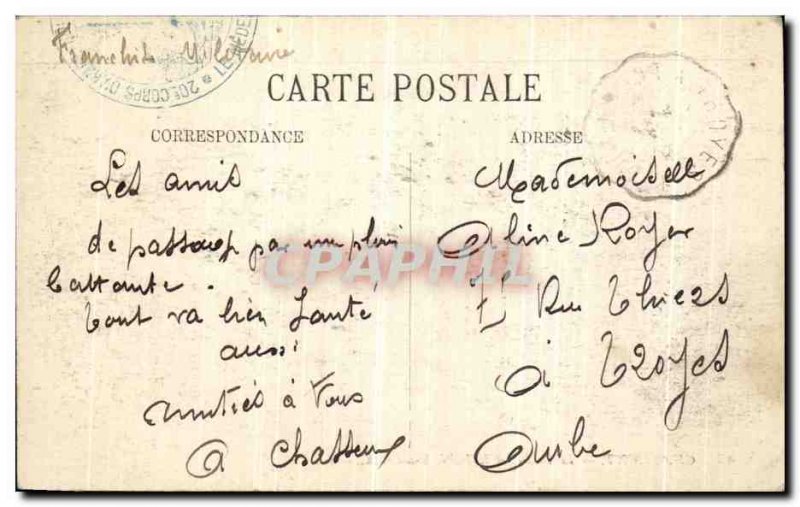 Franchise Militaire
20E CORPS D'ARM
CARTE POSTALE
CORRESPONDANCE
ADRESSE
Les amis
de passage par une pluie
battante.
tout va bien Santé
aussi
Amitiés à Vous
A Chasseur
Mademoiselle
Aline Royer
Rue Thiers
à Troyes
Aube
CPAPHIL